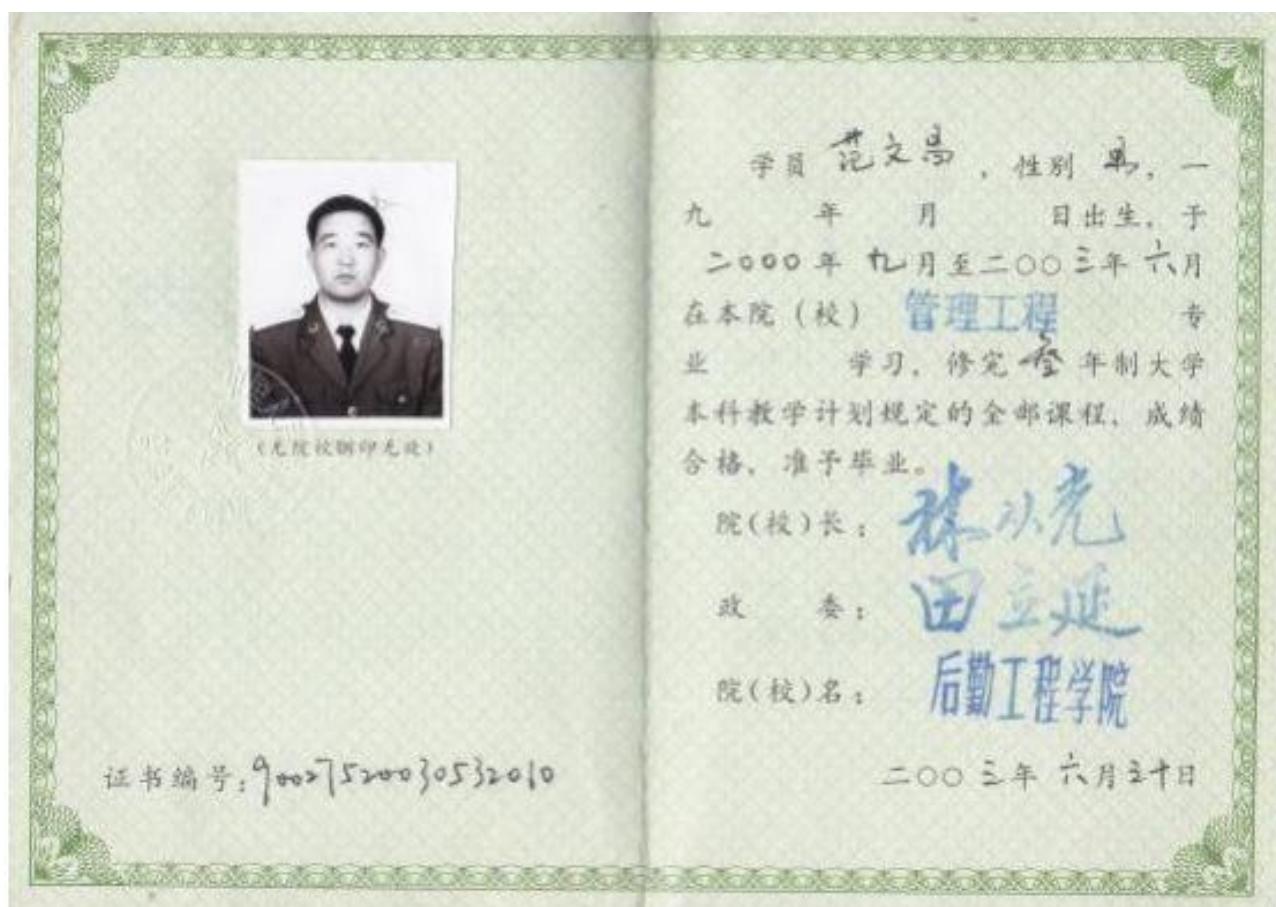 (无院校钢印无效)
证书编号:90027520030532010
学员 范文昌 ,性别 男,一
九 年 月 日出生,于
二000年 九月至二00三年 六月
在本院(校) 管理工程 专
业 学习,修完 叁 年制大学
本科教学计划规定的全部课程,成绩
合格,准予毕业。
院(校)长:
政 委:田立延
院(校)名:后勤工程学院
二00三年 六月三十日